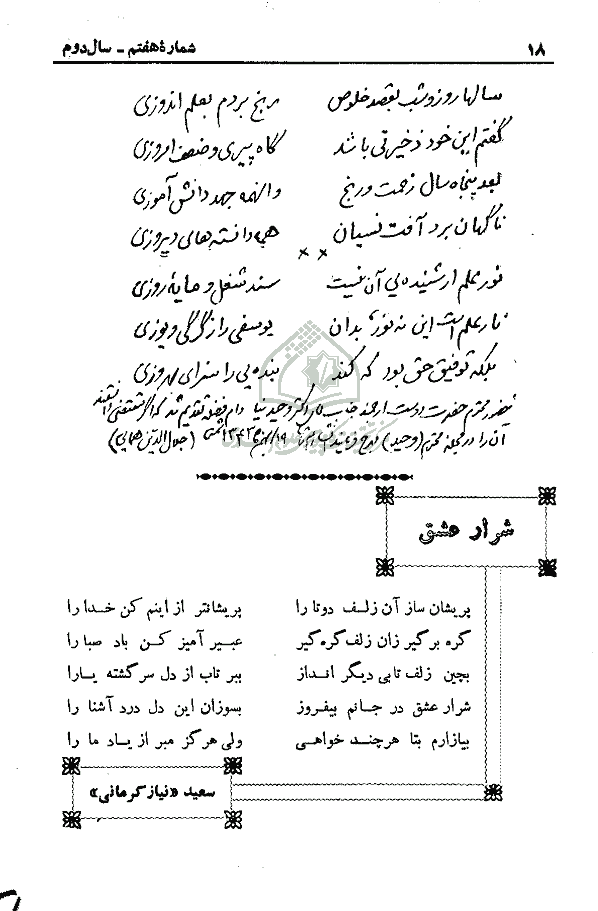 ۱۸ شمارهٔ هفتم ـ سال دوم
سالها روز و شب بقصد خلوص رنج بردم بعلم اندوزی
گفتم این خود ذخیرتی باشد گاه پیری و ضعف امروزی
بعد پنجاه سال زحمت و رنج و انهمه جهد دانش آموزی
ناگهان برد آفت نسیان همه دانسته های دیروزی
× ×
نور علم ار شنیده یی آن نیست سند شغل و مایهٔ روزی
نار علم است این نه نور، بدان یوسفی را ز گرگی و یوزی
بلکه توفیق حق بود که کند بنده یی را سزای بهروزی
محضر محترم حضرت دوست ارجمند جناب دکتر وحید نیا دام تقدیم شد که اگر مقتضی دانستند
آن را در مجله محترم (وحید) درج فرمایند ۱۹ ۱۳۴۳ شمسی (جلال الدین همایی)
شرار عشق
پریشان ساز آن زلف دوتا را پریشانتر از اینم کن خدا را
گره بر گیر زان زلف گره گیر عبیر آمیز کن باد صبا را
بچین زلف تابی دیگر انداز ببر تاب از دل سرگشته یارا
شرار عشق در جانم بیفروز بسوزان این دل درد آشنا را
بیازارم بتا هرچند خواهی ولی هرگز مبر از یاد ما را
سعید «نیاز کرمانی»